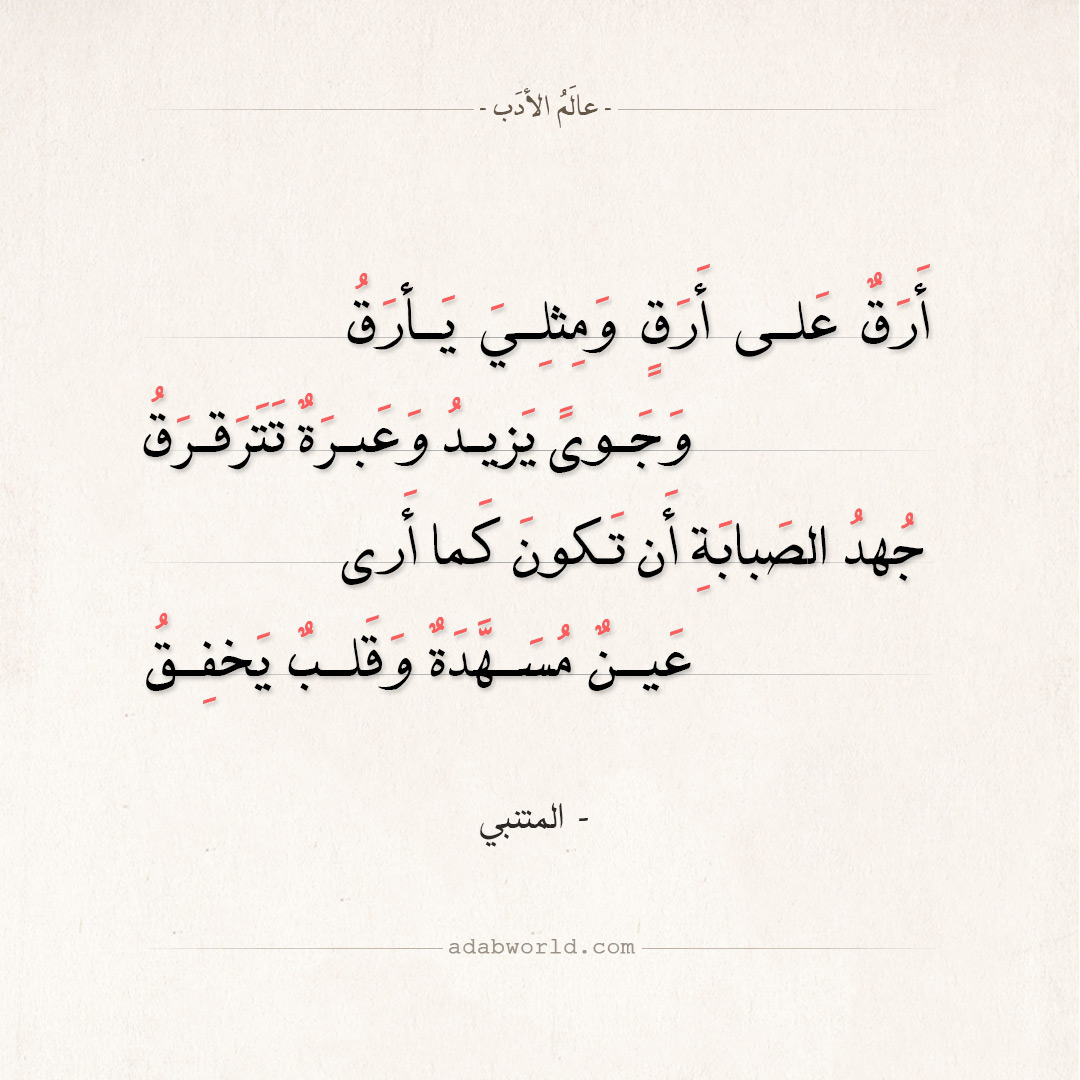 - عالَمُ الأدَب -
أَرَقٌ عَلــى أَرَقٍ وَمِثلِــيَ يَــأرَقُ
وَجَــوىً يَزيــدُ وَعَبــرَةٌ تَتَرَقــرَقُ
جُهدُ الصَبابَةِ أَن تَـكونَ كَما أَرى
عَيــنٌ مُسَــهَّدَةٌ وَقَلــبٌ يَخفِــقُ
- المتنبي
adabworld.com